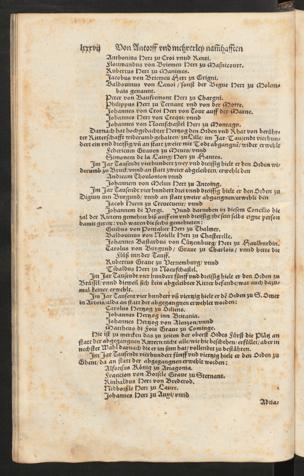 lxxvij Von Antorff vnd mehrerley namhafften
Anthonius Herr zu Croi vnnd Renti.
Florimundus von Briemen Herr zu Masincourt.
Rubertus Herr zu Manimes.
Jacobus von Briemen Herr zu Grigni.
Balduinus von Lanoi / sonst der Begue Herr zu Molens
bais genannt.
Peter von Bauffremont Herr zu Chargni.
Philippus Herr zu Ternant vnd von der Motte.
Johannes von Croi Herr von Tour auff der Marne.
Johannes Herr von Crequi vnnd
Johannes von Neufschastel Herr zu Montagu.
Darnach hat hochgedachter Hertzog den Orden vnd Rhat von berühm
ter Ritterschafft widerumb gehalten / zu Lille im Jar Tausendt vierhun
dert ein vnd dreissig vñ an statt zweier mit Todt abgangnẽ / wider erwehlt
Friderichen Graven zu vnnd
Simonem de la Laing Herr zu Hantes.
Im Jar Tausendt vierhundert vnd zwey vnnd dreissig hielt er den Orden wi-
derumb zu vnnd an statt zweier abgeleibten / erwehlt den
Andream Tholonion vnnd
Johannem von Melun Herr zu Antoing.
Im Jar Tausendt vierhundert drei vnd dreissig hielt er den Orden zu
Digiun inn Burgundi / vnnd an statt zweier abgangnen erwehlt den
Jacob Herrn zu Crevecueur / vnnd
Johannem de Vergi. Vnnd darneben in diesem Concilio die
zal der Rittern gemehret biß auff ein vnd dreissig / thet jm selbs eigne person
damit zierte / vnd waren die sechs gemehrten:
Guidus von Pontalier Herr zu Thalmer.
Balduinus von Noielle Herr zu Chasterelle.
Johannes Bastardus von Lützenburg / Herr zu Haulburdin.
Carolus von Burgund / Grave zu Charlois / vnnd herre die
Filtz inn der Tauff.
Rubertus Grave zu Vernenburg / vnnd
Tibaldus Herr zu Noeufschastel.
Im Jar Tausendt vier hundert fünff vnd dreissig hielt er den Orden zu
Brüssel / vnnd dieweil sich kein abgeleibter Ritter befandt / war auch dazu-
mal keiner erwehlt.
Im Jar Tausent vier hundert vñ viertzig hielt er dẽ Orden zu S. Omer
in Artoia / alda an statt der abgegangenen erwehlt worden:
Carolus Hertzog zu Orliens.
Johannes Hertzog inn Britania.
Johannes Hertzog von Alentzon / vnnd
Mattheus de Fois Grave zu Cominge.
Hie ist zu mercken das zu zeiten der oberst Ordes Fürst die Plätz an
statt der abgegangnen Rittern nicht alle wie sie beschehen / erfüllet / aber im
nechster Wahl darnach die er im sinn hat / vollendet zu bestähten.
Im Jar Tausendt vierhundert fünff vnd viertzig hielt er den Orden zu
Ghent / da an statt der abgegangnen erwehlt worden:
Alfonsus König zu Arragonia.
Francion von Borselle Grave zu Sternant.
Rinbaldus Herr von Brederod.
Niobourlle Herr zu
Johannes Herr zu Auxi / vnnd
Adria-